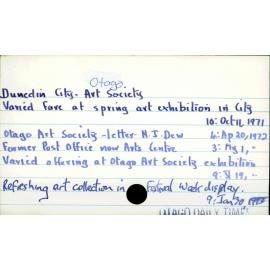 Otago.
Dunedin City - Art Society
Varied fare at spring art exhibition in City
10: Oct 11, 1971
Otago Art Society - letter N.J. Dew 4: Ap 20, 1972
Former Post Office now Arts Centre 3: Ag 1, "
Varied offering at Otago Art Society exhibition
9: S 19, "
Refreshing art collection in Festival Week display.
9: Jan 20
OTAGO DAILY TIMES